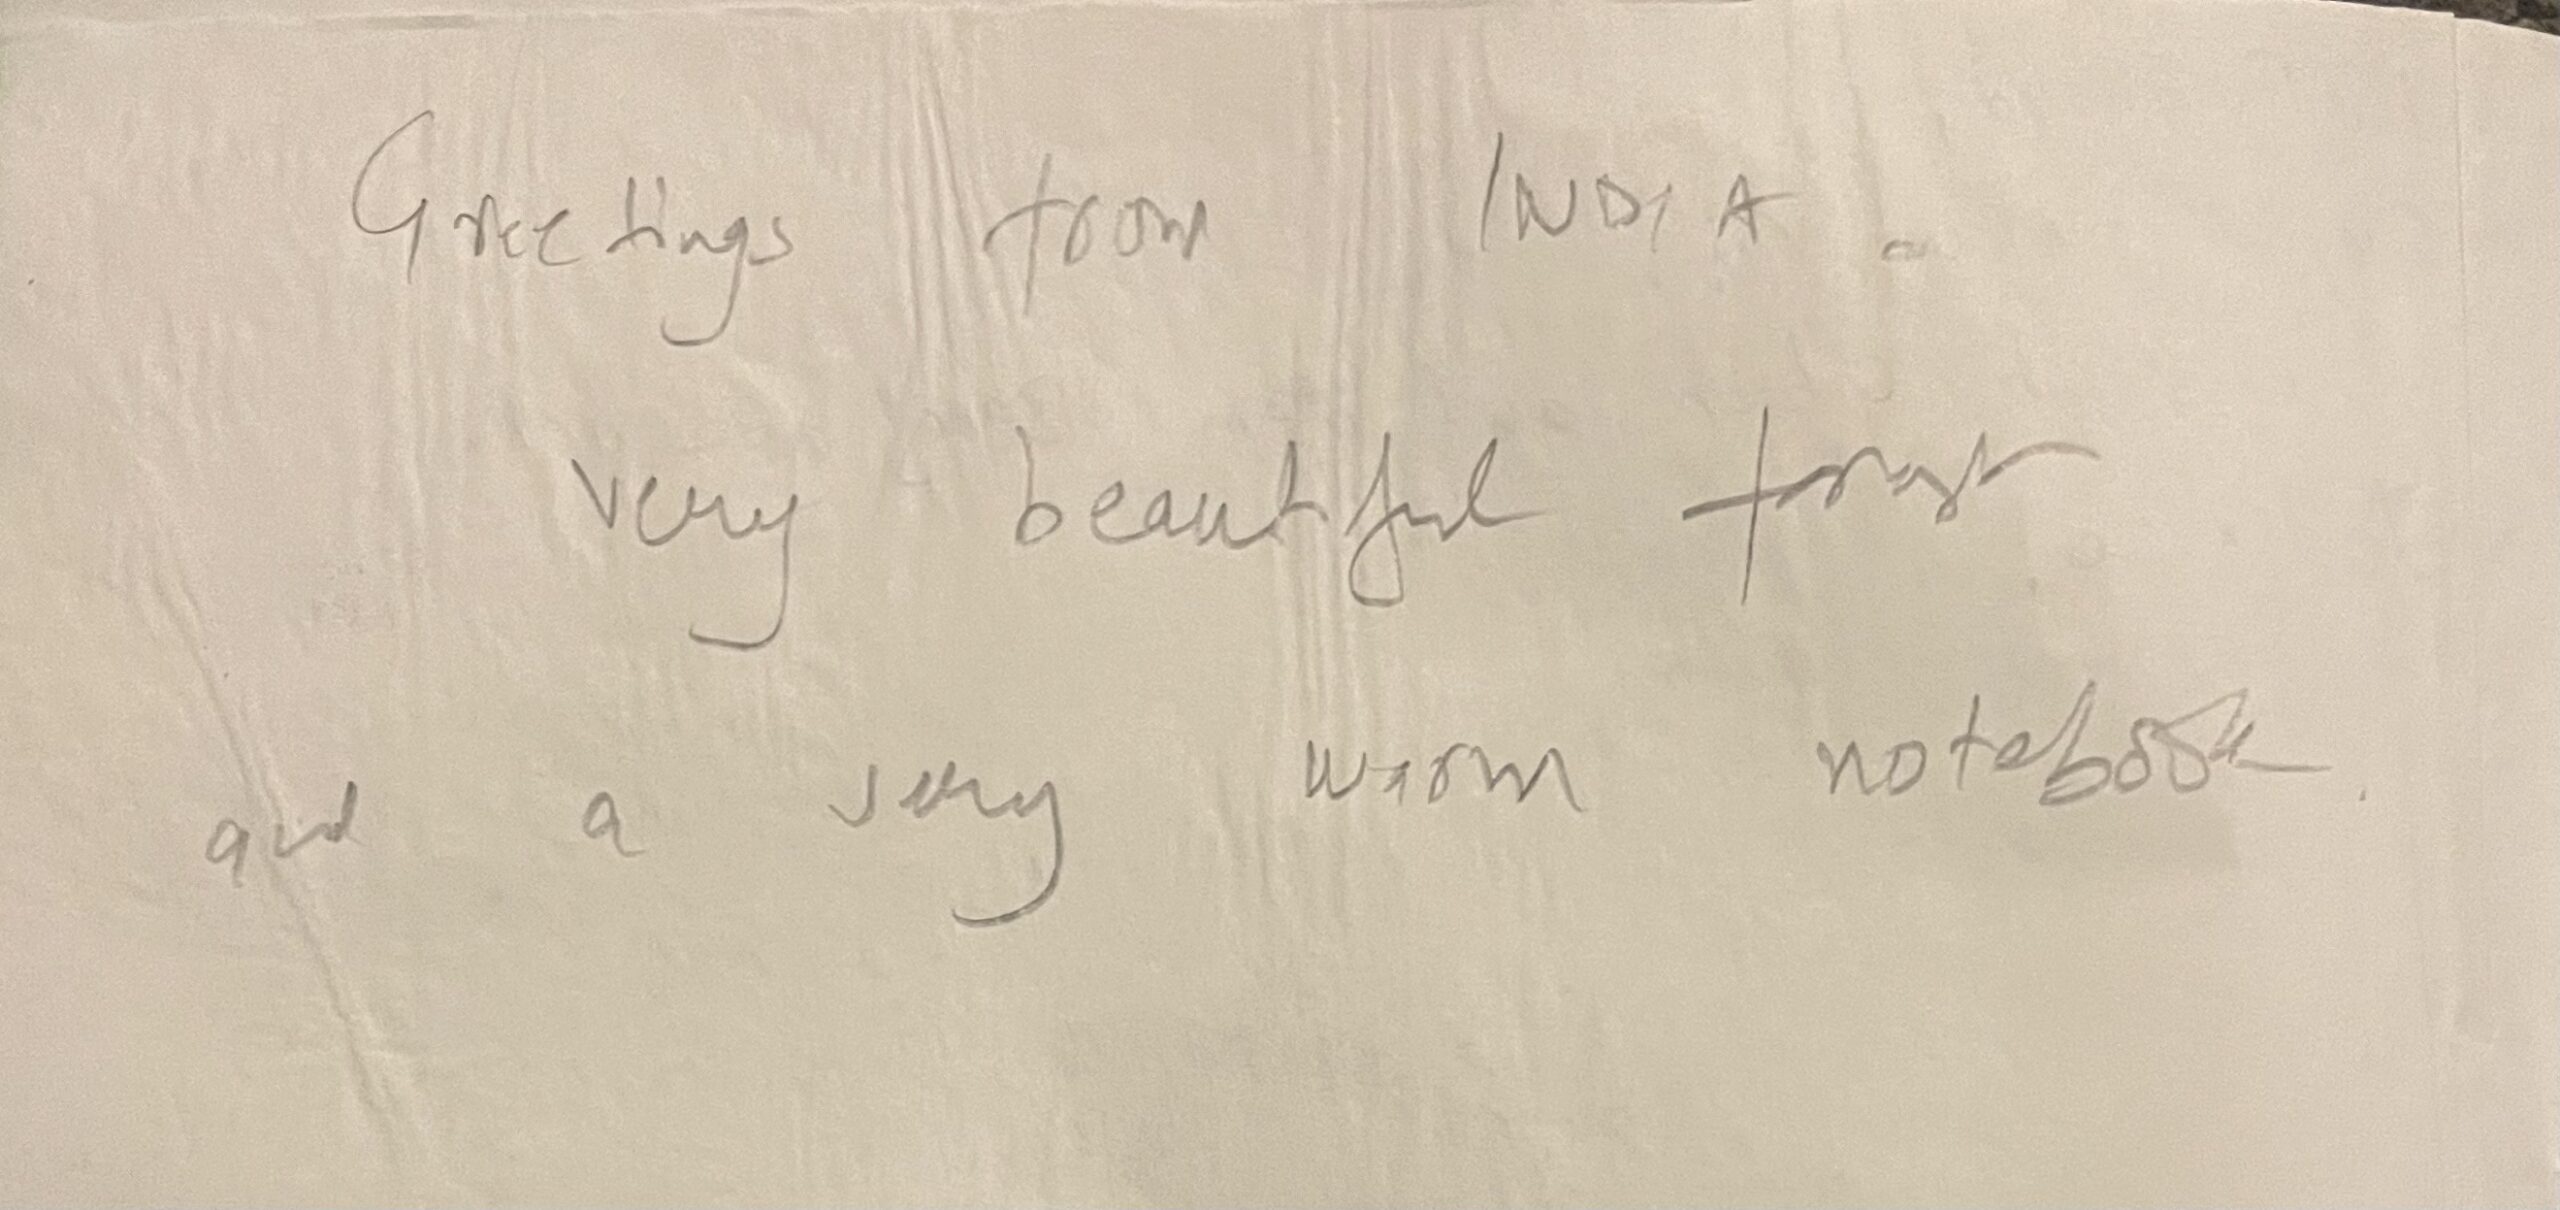 Greetings from INDIA
very beautiful
and a very warm notebook.